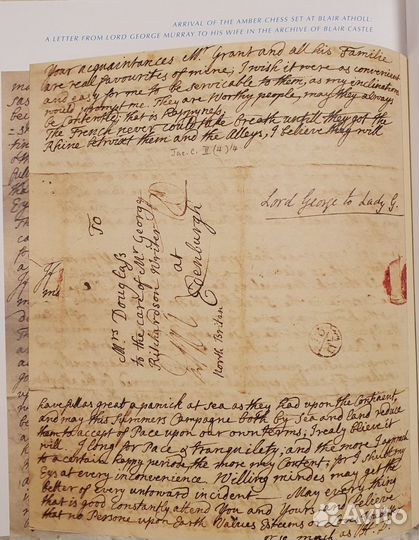 ARRIVAL OF THE AMBER CHESS SET AT BLAIR ATHOLL:
A LETTER FROM LORD GEORGE MURRAY TO HIS WIFE IN THE ARCHIVE OF BLAIR CASTLE
Your acquaintances Mr. Grant and all his Familie
are real favourites of mine; I wish it were as convenient
and easy for me to be servicable to them, as my inclinations
would prompt me. They are Worthy people, may they always
be Contented; that is Happyness.
The French never could take breath untill they got the
Rhine betwixt them and the Alleys, I believe they will
Jac. C. II (4) 14
Lord George to Lady G.
To
Mrs Douglass
to the care of Mr George
Richardson Writer
at
Edenburgh
North Britan
have as great a panick at sea as they had upon the Continent,
and may this Summers Campagne both by Sea and land reduce
them to accept of Peace upon our own terms; I realy believe it
will.
I long for Peace & Tranquility, and the more I approach
to a certain happy periode, the more my Content; for I shut my
Eys at every inconvenience. Willing mindes may get the
better of every untoward incident — May every thing
that is good constantly attend You and Yours, and believe
that no Persone upon Earth Values Esteems
or so much as
Avito